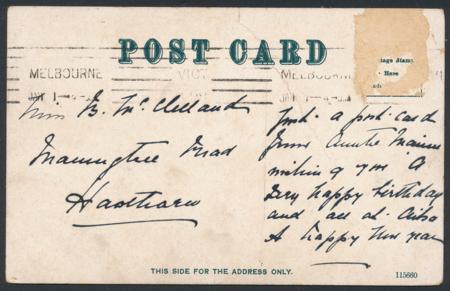 POST CARD
MELBOURNE
VICT
MELBOURNE
tage Stamp
Here
Miss B. McClelland
Manningtree Road
Hawthorn
Just a post-card
from Auntie
wishing you A
Very happy birthday
and all at
A happy New year
THIS SIDE FOR THE ADDRESS ONLY.
115660